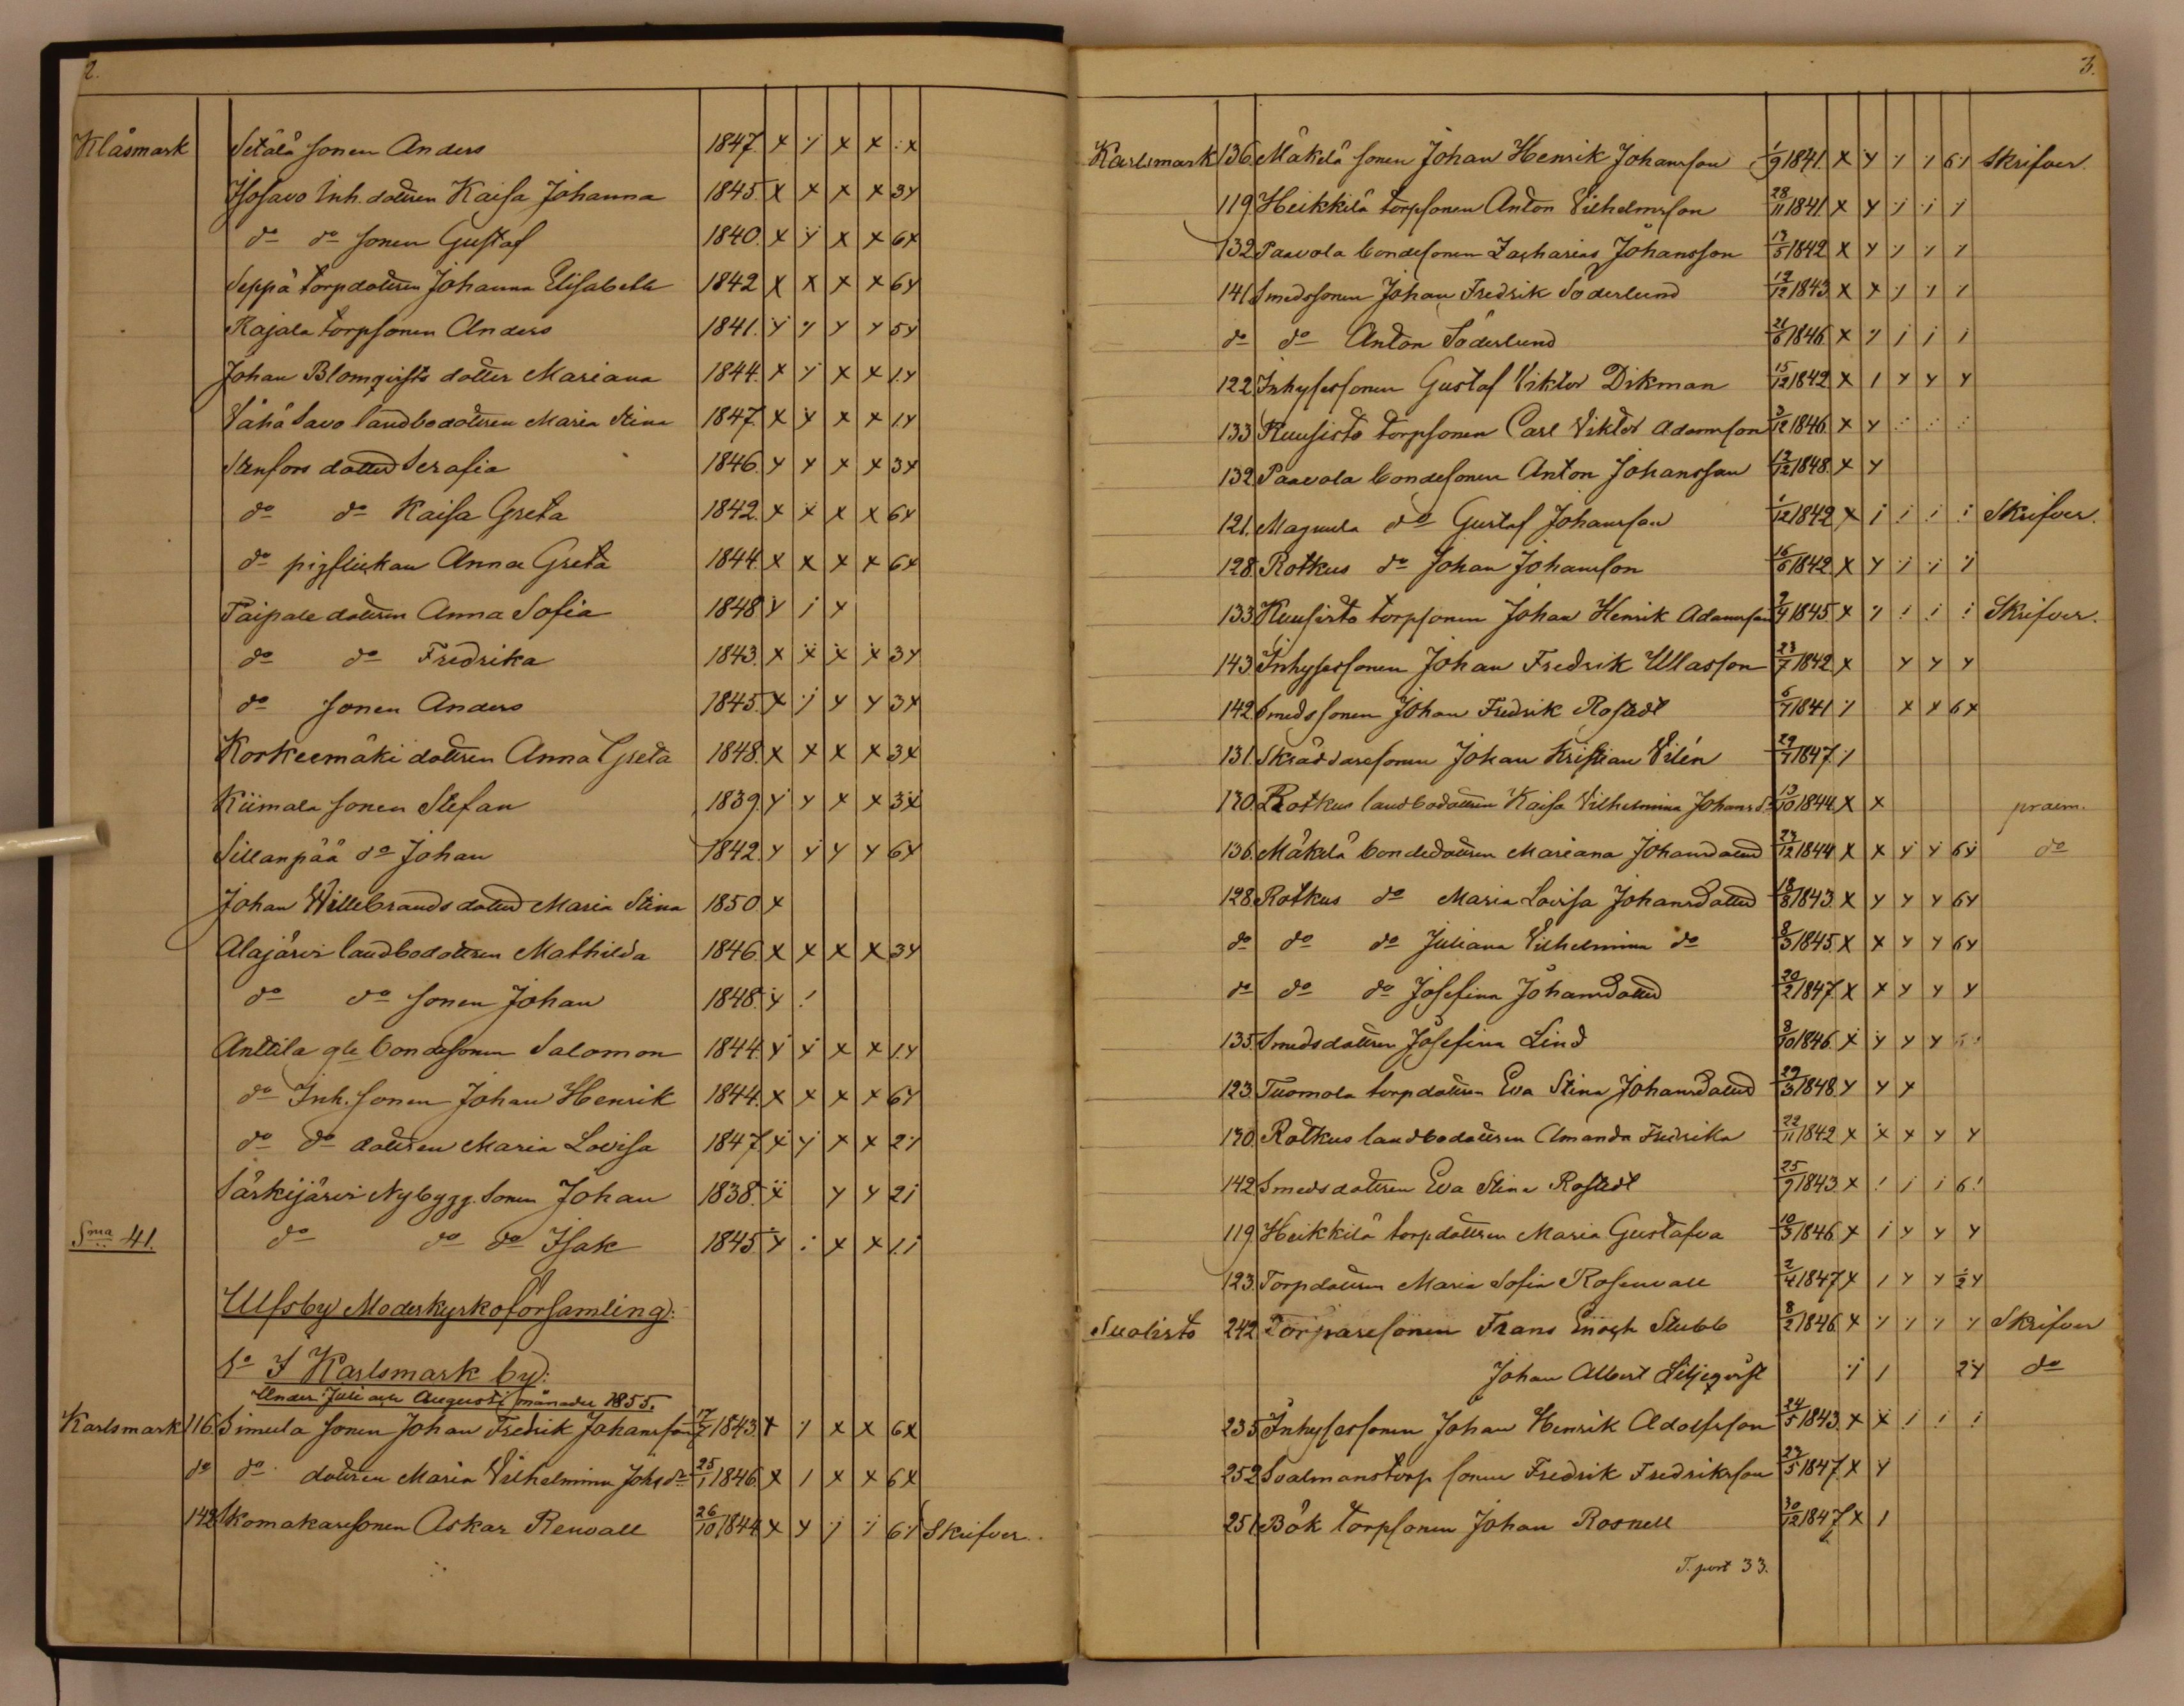 2.
Klåsmark Setälä sonen Anders 1847
Isosavo Inh. dottren Kaisa Johanna 1845. 3
do do sonen Gustaf 1840. 6
Seppä torpdottren Johanna Elisabeth 1842 6
Rajala torpsonen Anders 1841. 5
Johan Blomqvists dotter Mariana 1844. 1
Vähä Savo landbodottren Maria Stina 1847. 1
Stenfors dotter Serafia 1846. 3
do do Kaisa Greta 1842. 6
do pigflickan Anna Greta 1844. 6
Taipale dottren Anna Sofia 1848
do do Fredrika 1843. 3
do sonen Anders 1845. 3
Korkeemäki dottren Anna Greta 1848. 3
Kiimala sonen Stefan 1839. 3
Sillanpää do Johan 1842. 6
Johan Willebrands dotter Maria Stina 1850
Alajärvi landbodottren Mathilda 1846 3
do do sonen Johan 1848.
Anttila gle bondesonen Salomon 1844 1
do Inh. sonen Johan Henrik 1844. 6
do do dottren Maria Lovisa 1847. 2
Särkijärvi Nybygg. sonen Johan 1838. 2
Sma 41. do do do Isak 1845 1
Ulfsby Moderkyrkoförsamling:
I Karlsmark by:
Under Juli och Augusti månader 1855.
Karlsmark 116. Simula sonen Johan Fredrik Johansson 17/7 1843. 6
do do dottren Maria Vilhelmina Johsdr 25/1 1846. 6
142 Skomakaresonen Askar Renvall 26/10 1844 6 Skrifver.
3.
Karlsmark 136. Mäkelä sonen Johan Henrik Johansson 1/9 1841. 6 Skrifver.
119 Heikkilä torpsonen Anton Vilhelmsson 28/11 1841.
132 Paavola bondesonen Zacharias Johansson 17/5 1842
141 Smedssonen Johan Fredrik Söderlund 19/12 1843
do do Anton Söderlund 21/6 1846.
122 Inhysessonen Gustaf Viktor Dikman 15/12 1842
133 Kuusisto torpsonen Carl Viktor Adamsson 3/12 1846.
132 Paavola bondesonen Anton Johansson 13/12 1848.
121. Magnula do Gustaf Johansson 1/12 1842 Skrifver.
128. Rotkus do Johan Johansson 16/6 1842
133. Kuusisto torpsonen Johan Henrik Adamsson 2/4 1845. Skrifver.
143. Inhysessonen Johan Fredrik Ullasson 23/7 1842
142. Smedssonen Johan Fredrik Rostedt 5/7 1841 6
131. Skräddaresonen Johan Kristian Vilén 29/7 1847.
130. Rotkus landbodottren Kaisa Vilhelmina Johansdr 13/10 1844. praem.
136. Mäkelä bondedottren Mariana Johansdotter 23/12 1844 6 do
128. Rotkus do Maria Lovisa Johansdotter 18/8 1843. 6
do do do Juliana Vilhelmina do 8/3 1845. 6
do do do Josefina Johansdotter 20/2 1847.
135. Smedsdottren Josefina Lind 8/10 1846.
123. Tuomola torpdottren Eva Stina Johansdotter 29/3 1848.
130. Rotkus landbodottren Amanda Fredrika 22/11 1842
142 Smedsdottren Eva Stina Rostedt 25/9 1843. 6
119 Heikkilä torpdottren Maria Gustafva 10/3 1846.
123. Torpdottren Maria Sofia Rosenvall 2/4 1847
Suolisto 242 Torparesonen Frans Enoch Stubb 8/2 1846. Skrifver
Johan Albert Liljeqvist 2 do
235 Inhysessonen Johan Henrik Adolfsson 24/5 1843.
252 Soalmanstorp sonen Fredrik Fredriksson 23/5 1847.
251 Bök torpsonen Johan Rosnell 30/12 1847
T. port 33.